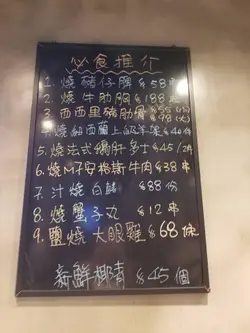 必食推介
1. 燒豬仔脾 $58
2. 燒牛肋胸 $188
3. 西西里豬肋骨 $55(小)
$98(大)
4. 燒紐西蘭上級羊架 $40件
5. 燒法式鵝肝多士 $45/2件
6. 燒M7安格斯牛肉 $38串
7. 汁燒白鱔 $88份
8. 燒蟹子丸 $12串
9. 鹽燒大眼雞 $68條
新鮮椰青 $45個